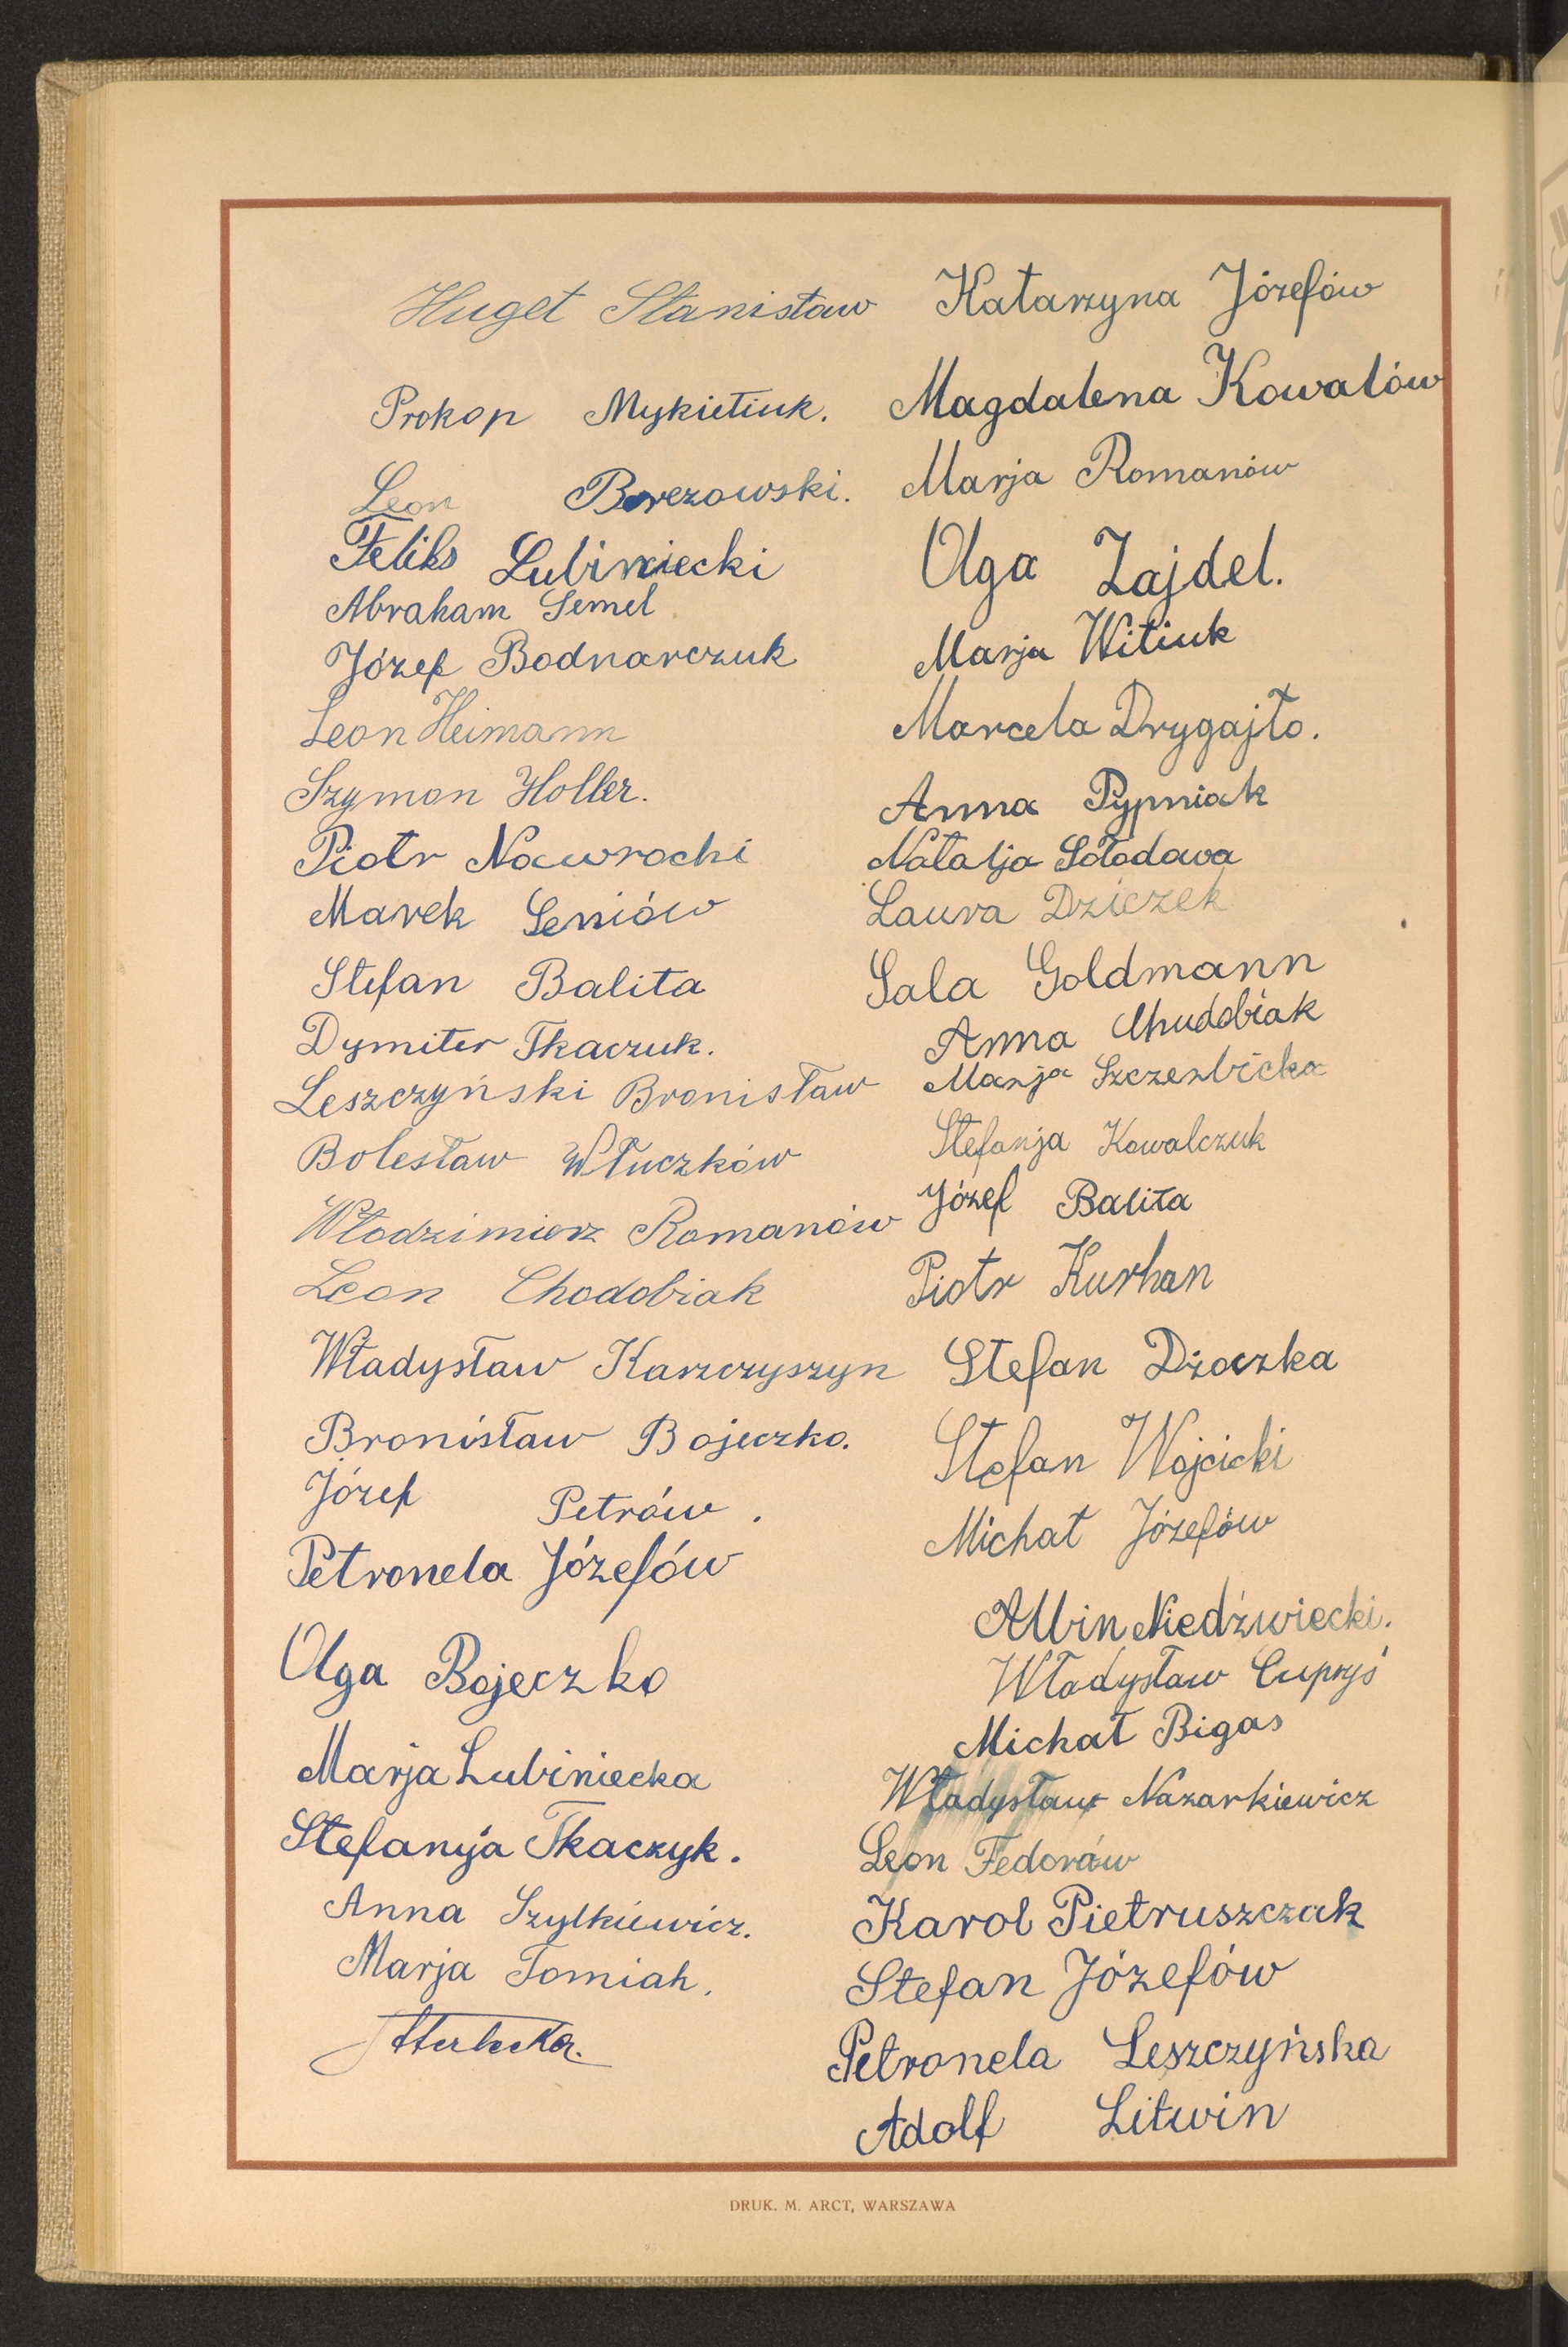 Huget Stanisław
Prokop Mykietiuk.
Leon Berezowski.
Feliks Lubiniecki
Abraham Semel
Józef Bodnarczuk
Leon Heimann
Szymon Holler.
Piotr Nawrocki
Marek Seniów
Stefan Balita
Dymiter Tkaczuk.
Leszczyński Bronisław
Bolesław Wtuczków
Włodzimierz Romanów
Leon Chodobiak
Władysław Karzczyszyn
Bronisław Bojeczko.
Józef Petrów.
Petronela Józefów
Olga Bojeczko
Marja Lubiniecka
Stefanja Tkaczyk.
Anna Szylkiewicz.
Marja Tomiah.
Katarzyna Józefów
Magdalena Kowalów
Marja Romanów
Olga Zajdel.
Marja Witiuk
Marcela Drygajło.
Anna Pypniak
Natalja Sołodawa
Laura Dziczek
Sala Goldmann
Anna Chudobiak
Marja Szczerbicka
Stefanja Kowalczuk
Józef Balita
Piotr Kurhan
Stefan Dżoczka
Stefan Wojcicki
Michał Józefów
Albin Niedźwiecki.
Władysław Cupryś
Michał Bigas
Władysław Nazarkiewicz
Leon Fedorów
Karol Pietruszczak
Stefan Józefów
Petronela Leszczyńska
Adolf Litwin
DRUK. M. ARCT, WARSZAWA